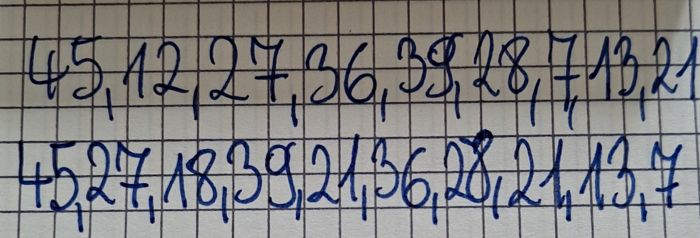 45,12,27,36,39,28,7,13,21
45,27,18,39,21,36,28,21,13,7